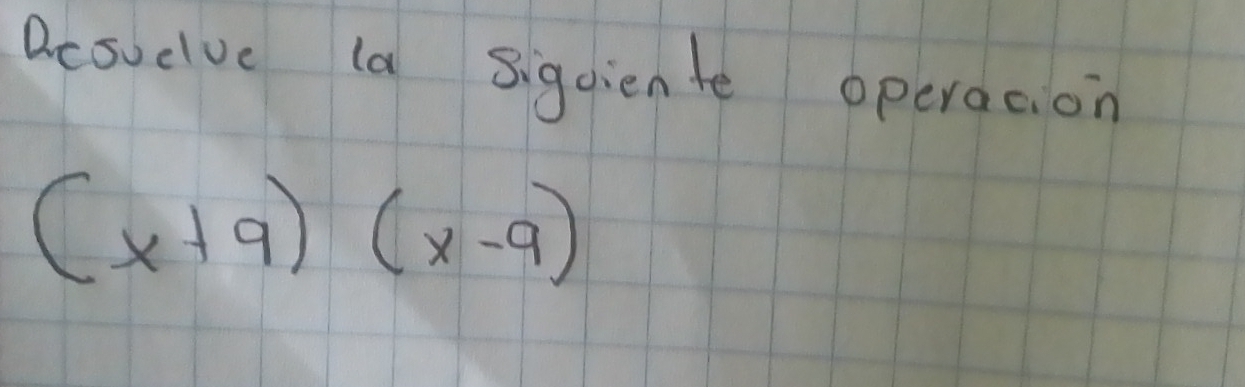 Resuelve la siguiente operación
(x+9) (x-9)